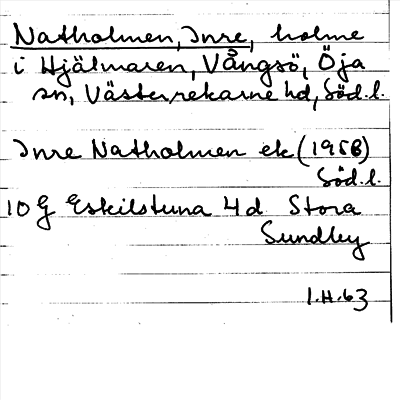 Natholmen, Inre, holme
i Hjälmaren, Vångsö, Öja
sn, Västerrekarne hd, Söd. l.
Inre Natholmen ek (1958)
Söd. l.
10 G Eskilstuna 4 d Stora
Sundby
I.H.63